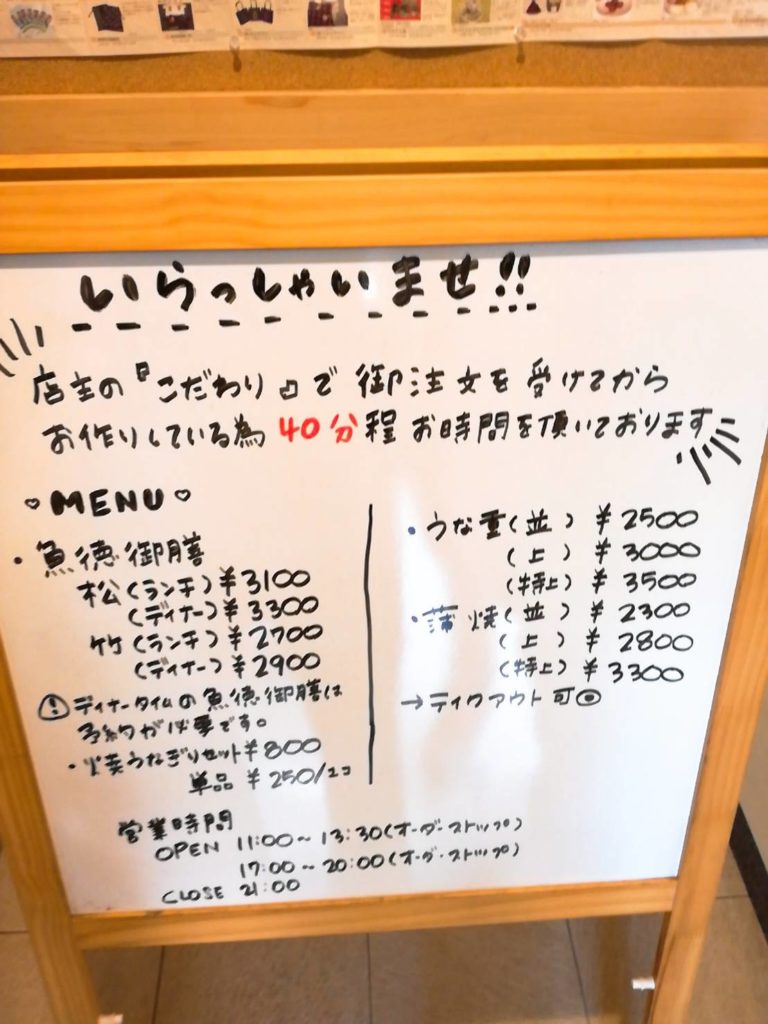 いらっしゃいませ!!
店主の『こだわり』で御注文を受けてから
お作りしている為40分程お時間を頂いております
♡MENU♡
・魚徳御膳
松(ランチ)¥3100
(ディナー)¥3300
竹(ランチ)¥2700
(ディナー)¥2900
!ディナータイムの魚徳御膳は
予約が必要です。
・焼うなぎりセット¥800
単品 ¥250/1コ
・うな重(並) ¥2500
(上) ¥3000
(特上) ¥3500
・蒲焼(並) ¥2300
(上) ¥2800
(特上) ¥3300
→テイクアウト可◎
営業時間
OPEN 11:00~13:30(オーダーストップ)
17:00~20:00(オーダーストップ)
CLOSE 21:00